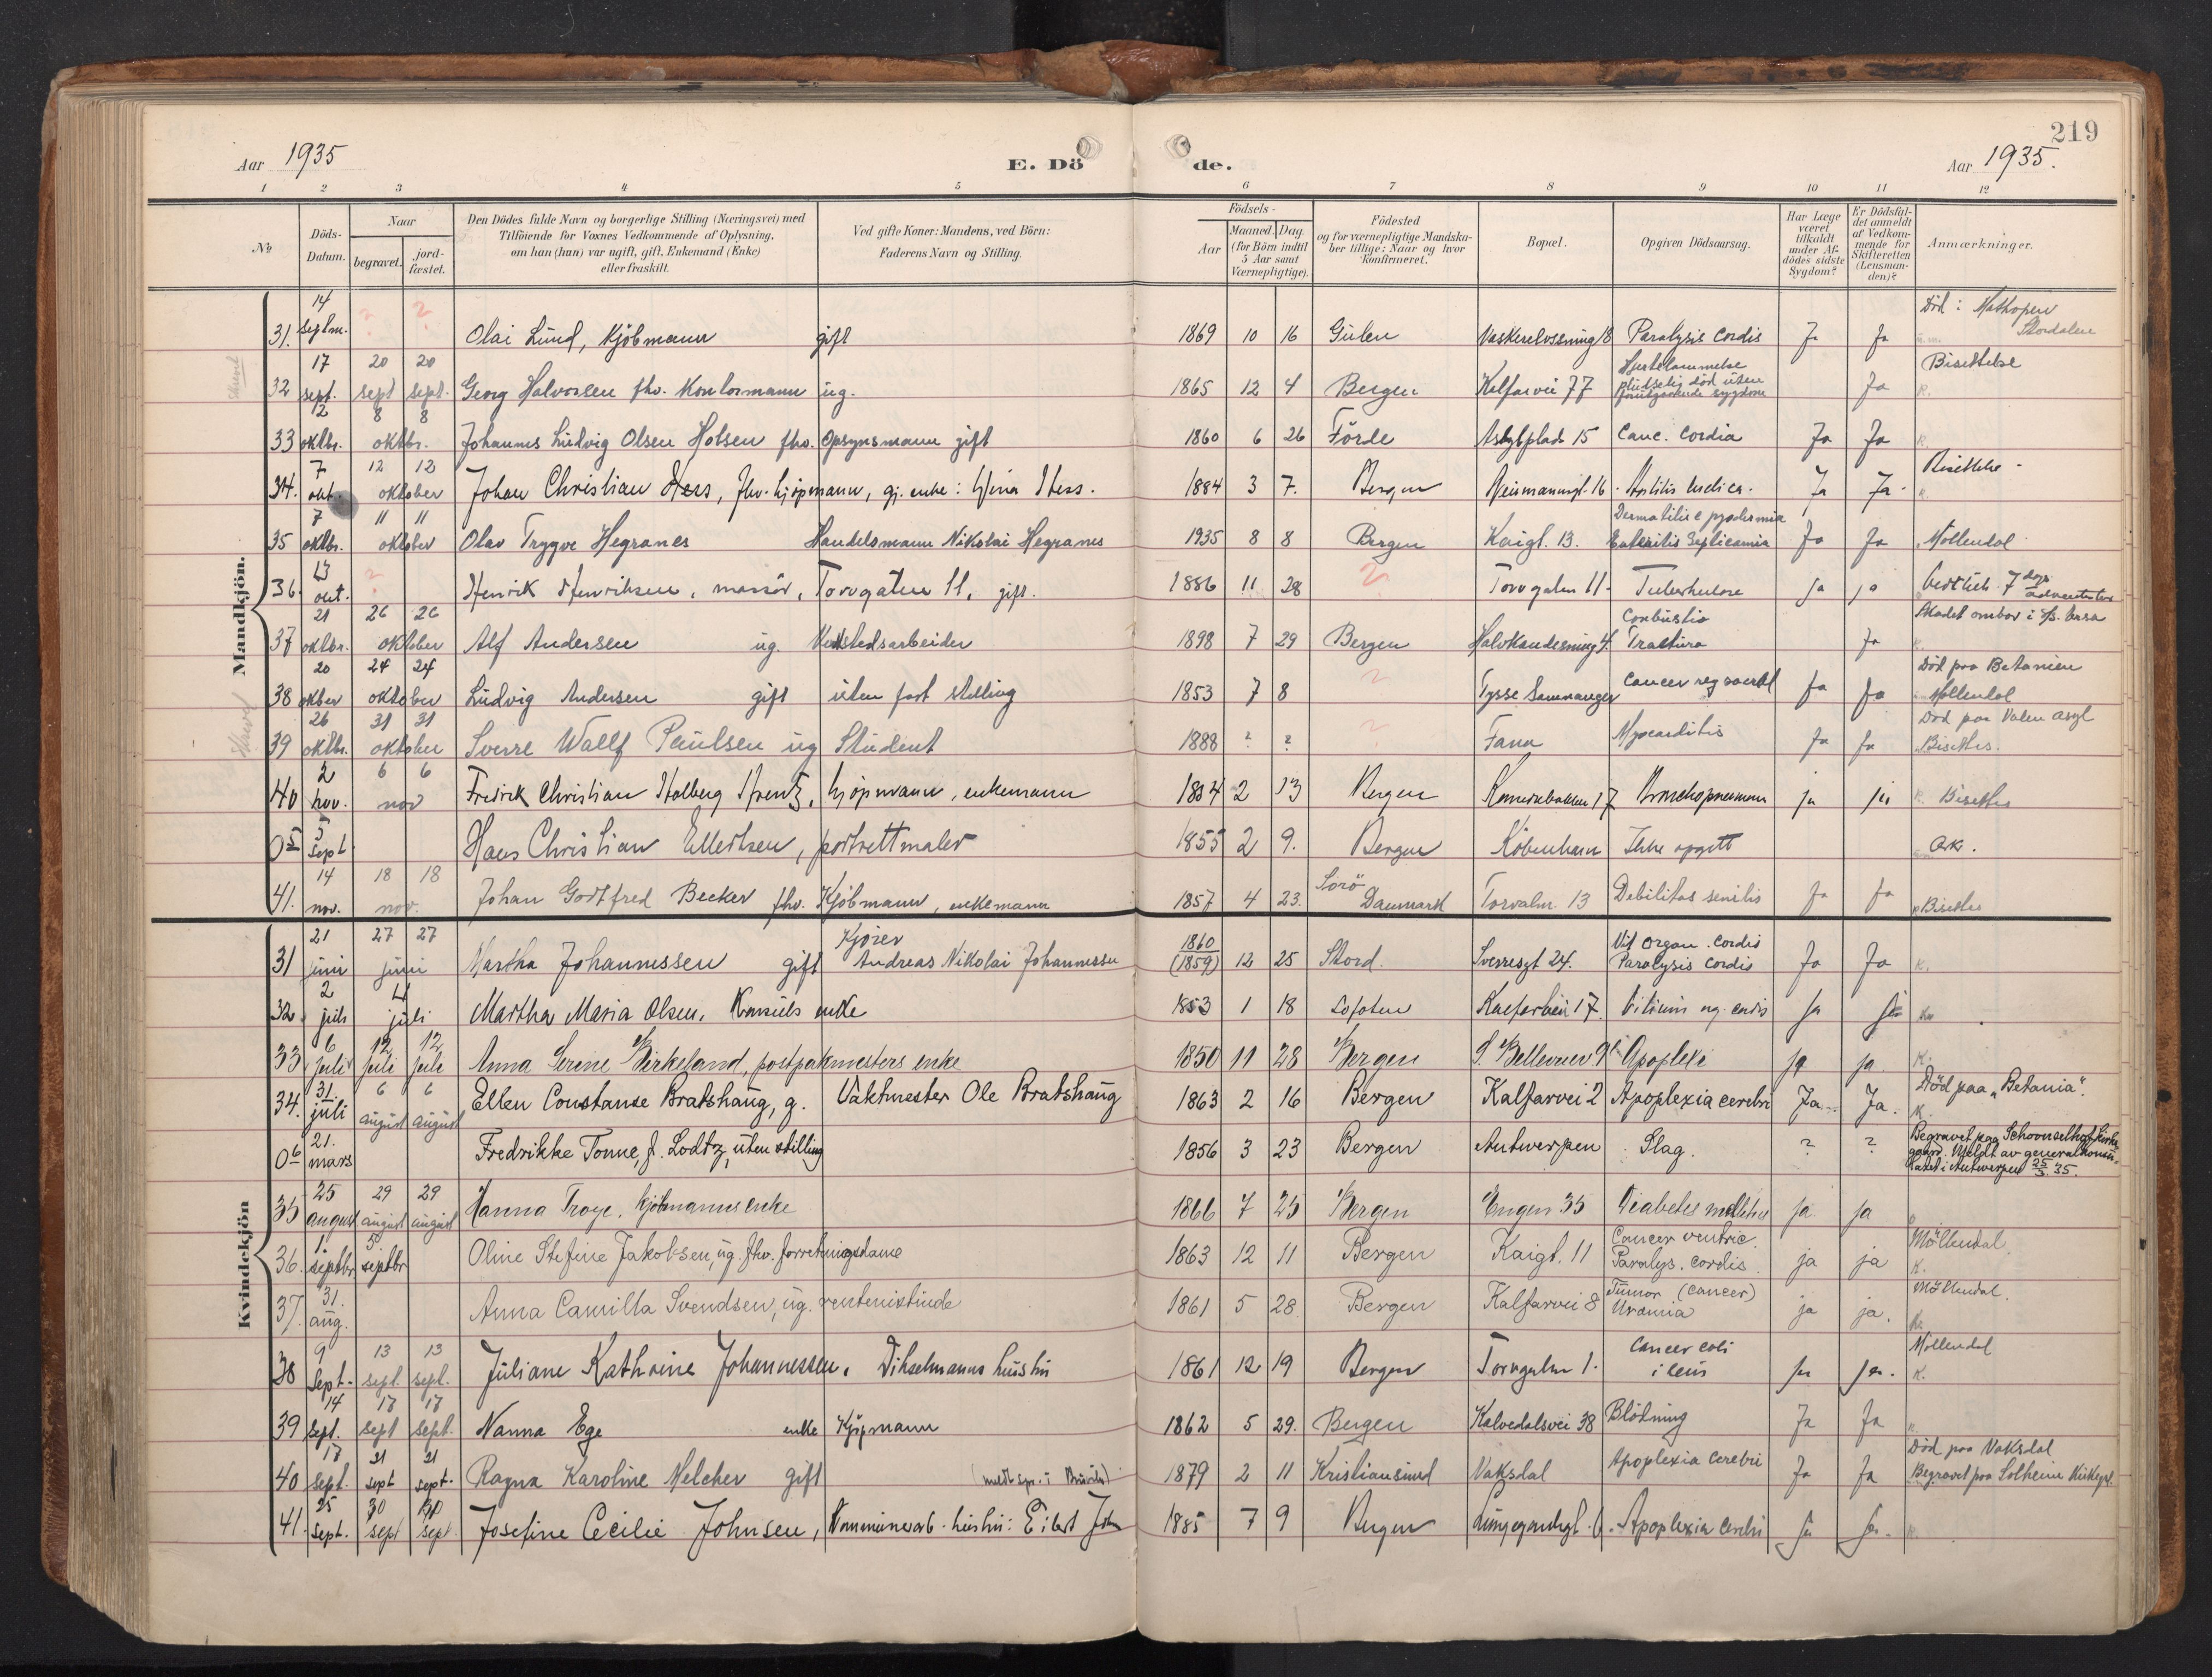 219
Aar 1935
E. Dö de.
Aar 1935.
1 2 3 4 5 6 7 8 9 10 11 12
No
Döds-Datum.
Naar
begravet.
jord-fæstet.
Den Dödes fulde Navn og borgerlige Stilling (Næringsvei) med
Tilföiende for Voxnes Vedkommende af Oplysning,
om han (hun) var ugift, gift, Enkemand (Enke)
eller fraskilt.
Ved gifte Koner: Mandens, ved Börn:
Faderens Navn og Stilling.
Födsels-
Aar
Maaned. Dag.
(for Börn indtil
5 Aar samt
Værnepligtige).
Födested
og for værnepligtige Mandska-
ber tillige: Naar og hvor
konfirmeret.
Bopæl.
Opgiven Dödsaarsag.
Har Læge
været
tilkaldt
under Af-
dödes sidste
Sygdom?
Er Dödsfal-
det anmeldt
af Vedkom-
mende for
Skifteretten
(Lensman-
den)?
Anmærkninger.
Mandkjön.
31. 14 septm. ? ? Olai Lund, Kjöbmann gift 1869 10 16 Gulen Vaskerelvssmug 18 Paralysis cordis Ja Ja Död: Mathopen Stordalen
32 17 sept. 20 sept 20 sept. Georg Halvorsen fhv. Kontormann ug. 1865 12 4 Bergen Kalfarvei 77 Hjertelammelse plutselig död uten forutgaaende sygdom Ja Bisættelse K.
33 2 oktbr. 8 8 oktbr. Johannes Ludvig Olsen Holsen fhv. Opsynsmann gift 1860 6 26 Förde Asylplads 15 Canc. Cordia Ja Ja K.
34. 7 okt. 12 12 oktober Johan Christian Hess, fhv. kjöpmann, gj. enke: Hess. 1884 3 7. Bergen Neumannsgt. 16 Ja Ja. Bisettelse - K.
35 7 oktbr. 11 11 oktober Olav Trygve Hegranes Handelsmann Nikolai Hegranes 1935 8 8 Bergen Kaigt. 13. Dermatitis e pyodermia Enteritis Septicamia Ja Ja Möllendal
36. 13 okt. ? Henrik Henriksen, massör, Torvgaten 11, gift. 1886 11 28 ? Torvgaten 11 Tuberkulose ja ja 7 dags adventister
37 21 oktbr. 26 26 oktober Alf Andersen ug. Verkstedsarbeider 1898 7 29 Bergen Halvkandesmug 4. Conbustio Fractura Ja Skadet ombor i s/s. Ursa K.
38 20 oktber 24 24 oktober Ludvig Andersen gift uten fast stilling 1853 7 8 ? Tysse Samnanger Cancer Ja Ja Död paa Betanien Möllendal
39 26 oktbr. 31 31 oktober Sverre Wallf Paulsen ug Student 1888 ? ? ? Fana Myocarditis Ja Ja Död paa Valen asyl Bisettes.
40 2 nov. 6 6 nov Fredrik Christian Holberg Arentz, kjöpmann, enkemann 1884 2 13 Bergen 17 Bronchopneumoni ja ja K. Bisettes
0 5 5 sept Hans Christian Ellertsen, portrettmaler 1855 2 9. Bergen Köbenhavn Ikke opgitt
41. 14 nov. 18 18 nov. Johan Godtfred Becker fhv. Kjöbmann, enkemann 1857 4 23. Sorö Danmark Torvalm. 13 Debilitas senilis Ja Ja Bisettes
Kvindekjön
31 21 juni 27 27 juni Martha Johannessen gift Kjörer Andreas Nikolai Johannessen 1860 (1859) 12 25 Stord. Sverresgt 24. Vit organ. Cordis Paralysis Cordis Ja Ja K.
32 2 juli 4 juli Martha Maria Olsen, Konsuls enke 1853 1 18 Lofoten Kalfarvei 17. Vitium org. cordis Ja Ja
33 6 juli 12 juli 12 juli Anna Serene Birkeland, postpakmesters enke 1850 11 28 Bergen S. Bellevuev 9 Apoplexi ja ja K.
34. 31 juli 6 august 6 august Ellen Constanse Bratshaug, g. Vaktmester Ole Bratshaug 1863 2 16 Bergen Kalfarvei 2 Apoplexia cerebri Ja. Ja. Död paa "Betania". K.
0 6 21. mars Fredrikke Tonne, f. Lodtz, uten stilling 1856 3 23 Bergen Antwerpen Slag. ? ? Begravet paa Schoonselhof Kirkegaard. Meldt av generalkonsulatet i Antwerpen 25/3. 35.
35 25 august 29 august 29 august Hanna Troye, kjöbmanns enke 1866 7 25 Bergen Engen 35 Diabetes mellitus ja ja
36. 1. septbr 5 septbr Oline Stefine Jakobsen, ug. fhv. forretningsdame 1863 12 11 Bergen Kaigt. 11 Cancer ventric. Paralys. cordis. ja ja Möllendal. K.
37. 31. aug. Anna Camilla Svendsen, ug. rentenistinde 1861 5 28 Bergen Kalfarvei 8 Tumor (cancer) Uramia ja ja. Möllendal. K.
38 9 sept. 13 sept. 13 sept. Juliane Kathrine Johannessen, Dikselmanns hustru 1861 12 19 Bergen Torvgaten 1. Cancer coli ileus ja ja. Möllendal K.
39 14 sept. 17 sept 17 sept. Nanna Ege enke Kjöpmann 1862 5 29. Bergen Kalvedalsvei 38 Blödning Ja Ja K.
40 17 sept. 21 sept 21 sept. Ragna Karoline Melcher gift 1879 2 11 Kristiansund Vaksdal Apoplexia Cerebri Ja Ja Död paa Vaksdal Begravet paa Solheim Kirkegd.
41. 25 sept. 30 sept 30 sept. Josefine Cecilie Johnsen, Kommunearb. hustru: Eilert Joh 1885 7 9 Bergen Lungegaardsgt. 6. Apoplexia cerebri Ja Ja. K.